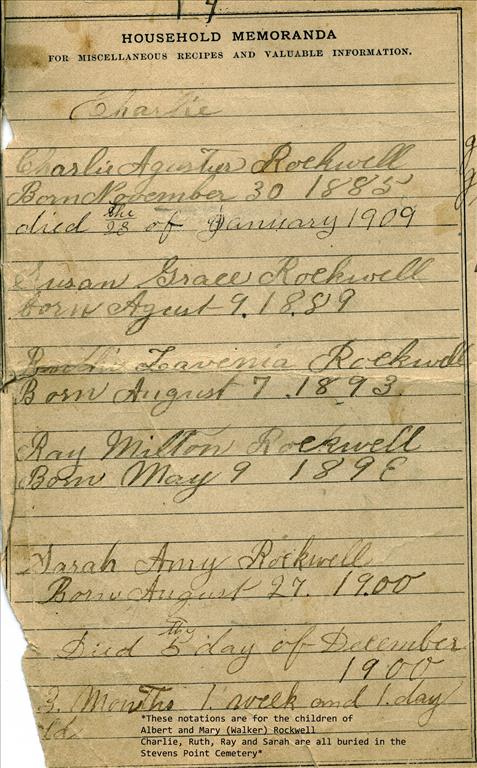 HOUSEHOLD MEMORANDA
FOR MISCELLANEOUS RECIPES AND VALUABLE INFORMATION.
Charlie
Charlie Agustys Rockwell
Born November 30 1885
died the 28 of January 1909
Susan Grace Rockwell
born Agust 9. 1889
Lavenia Rockwell
Born August 7. 1893
Ray Milton Rockwell
Born May 9 189
Sarah Amy Rockwell
Born August 27. 1900
Died thy 5 day of December
1900
3. Months 1. week and 1. day
old
*These notations are for the children of
Albert and Mary (Walker) Rockwell
Charlie, Ruth, Ray and Sarah are all buried in the
Stevens Point Cemetery*